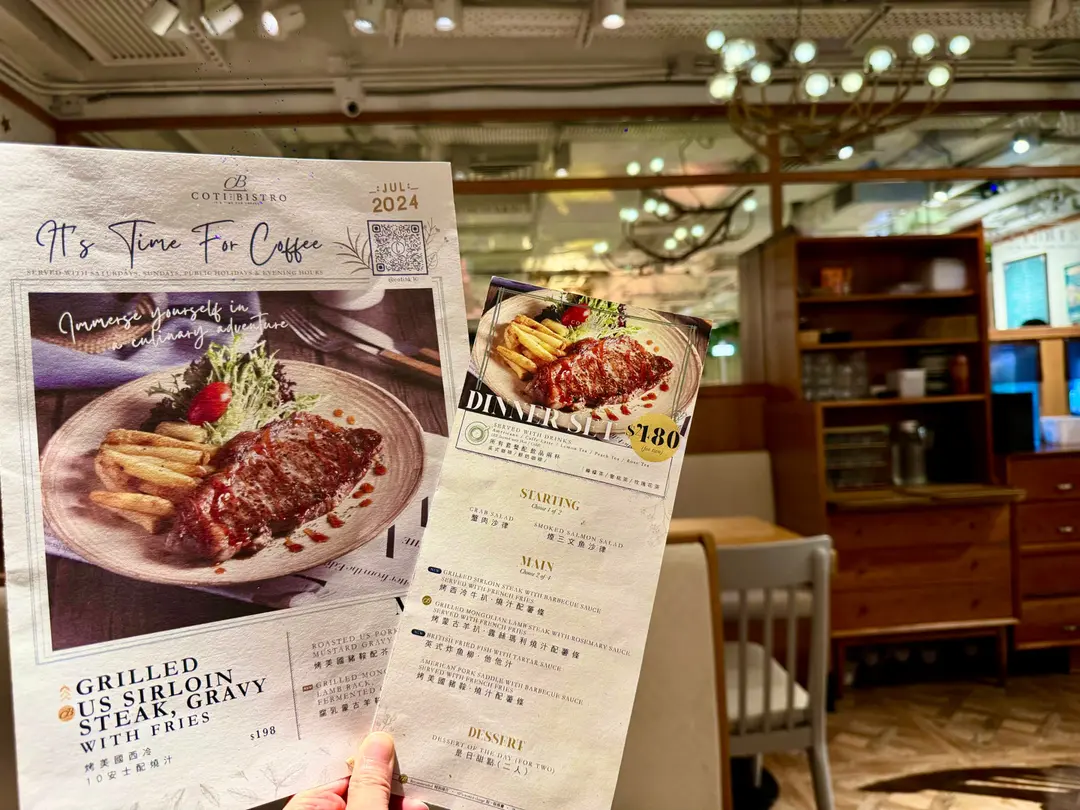 CB
COTI BISTRO
JUL
2024
It's Time For Coffee
SERVED WITH SATURDAYS, SUNDAYS, PUBLIC HOLIDAYS & EVENING HOURS
Immerse yourself in
a culinary adventure
GRILLED
US SIRLOIN
STEAK, GRAVY
WITH FRIES
$198
烤美國西冷
10安士配燒汁
ROASTED US PORK
MUSTARD GRAVY
烤美國豬鞍配芥
GRILLED MONG
LAMB RACK,
FERMENTED
腐乳蒙古羊
DINNER SET
$480
SERVED WITH DRINKS
所有套餐配飲品兩杯
STARTING
Choose 1 of 2
CRAB SALAD
蟹肉沙律
SMOKED SALMON SALAD
煙三文魚沙律
MAIN
Choose 2 of 4
GRILLED SIRLOIN STEAK WITH BARBECUE SAUCE
SERVED WITH FRENCH FRIES
烤西冷牛扒·燒汁配薯條
GRILLED MONGOLIAN LAMB STEAK WITH ROSEMARY SAUCE
SERVED WITH FRENCH FRIES
烤蒙古羊扒·露絲瑪利燒汁配薯條
BRITISH FRIED FISH WITH TARTAR SAUCE
英式炸魚柳·他他汁
AMERICAN PORK SADDLE WITH BARBECUE SAUCE
SERVED WITH FRENCH FRIES
烤美國豬鞍·燒汁配薯條
DESSERT
DESSERT OF THE DAY (FOR TWO)
是日甜點(二人)